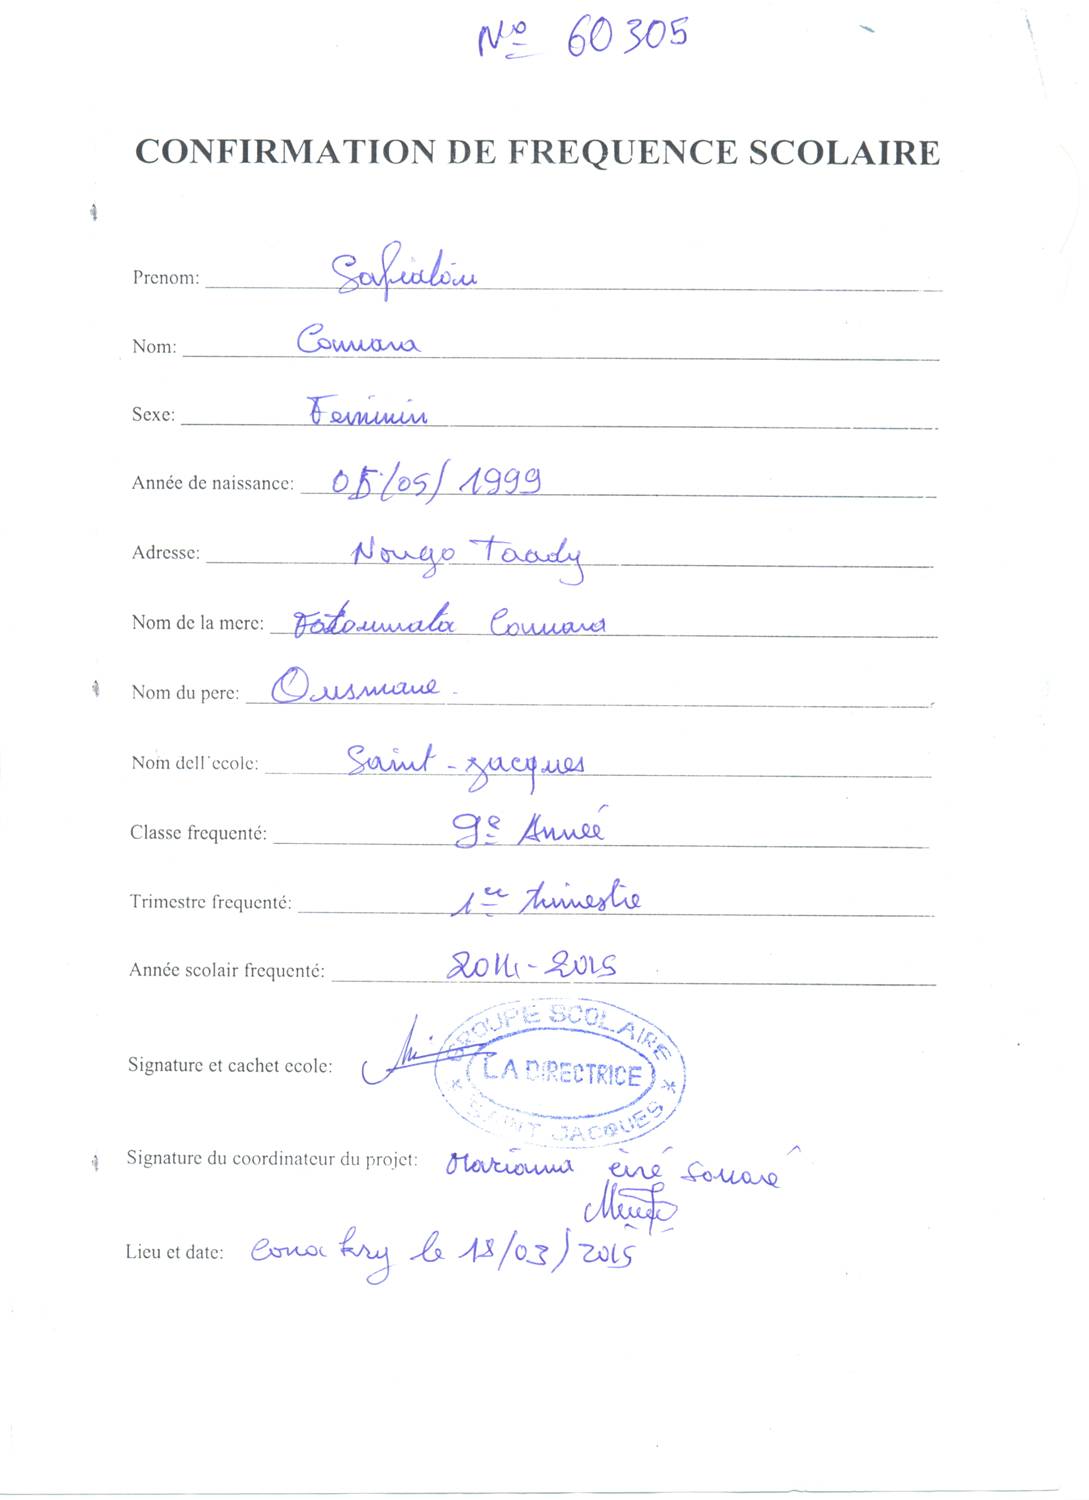 Nº 60305
CONFIRMATION DE FREQUENCE SCOLAIRE
Prenom: Safiatou
Nom: Camara
Sexe: Feminin
Année de naissance: 05/05/1999
Adresse: Nongo Taady
Nom de la mere: Fatoumata Camara
Nom du pere: Ousmane.
Nom dell'ecole: Saint-Jacques
Classe frequenté: 9e Année
Trimestre frequenté: 1er trimestre
Année scolair frequenté: 2014-2015
Signature et cachet ecole:
GROUPE SCOLAIRE
LA DIRECTRICE
SAINT JACQUES
Signature du coordinateur du projet: Mariama Ciré Souaré
Lieu et date: Conakry le 18/03/2015